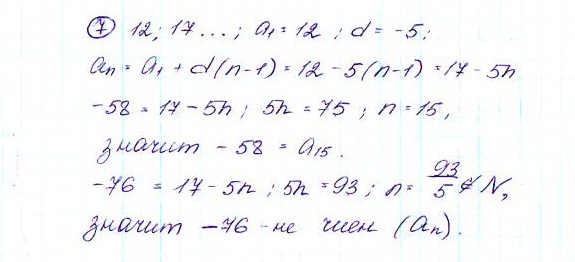 ⑦ 12; 17...; a₁ = 12; d = -5;
aₙ = a₁ + d(n-1) = 12 - 5(n-1) = 17 - 5n
-58 = 17 - 5n; 5n = 75; n = 15,
значит - 58 = a₁₅.
-76 = 17 - 5n; 5n = 93; n = 93/5 ∉ N,
значит -76 - не член (aₙ).